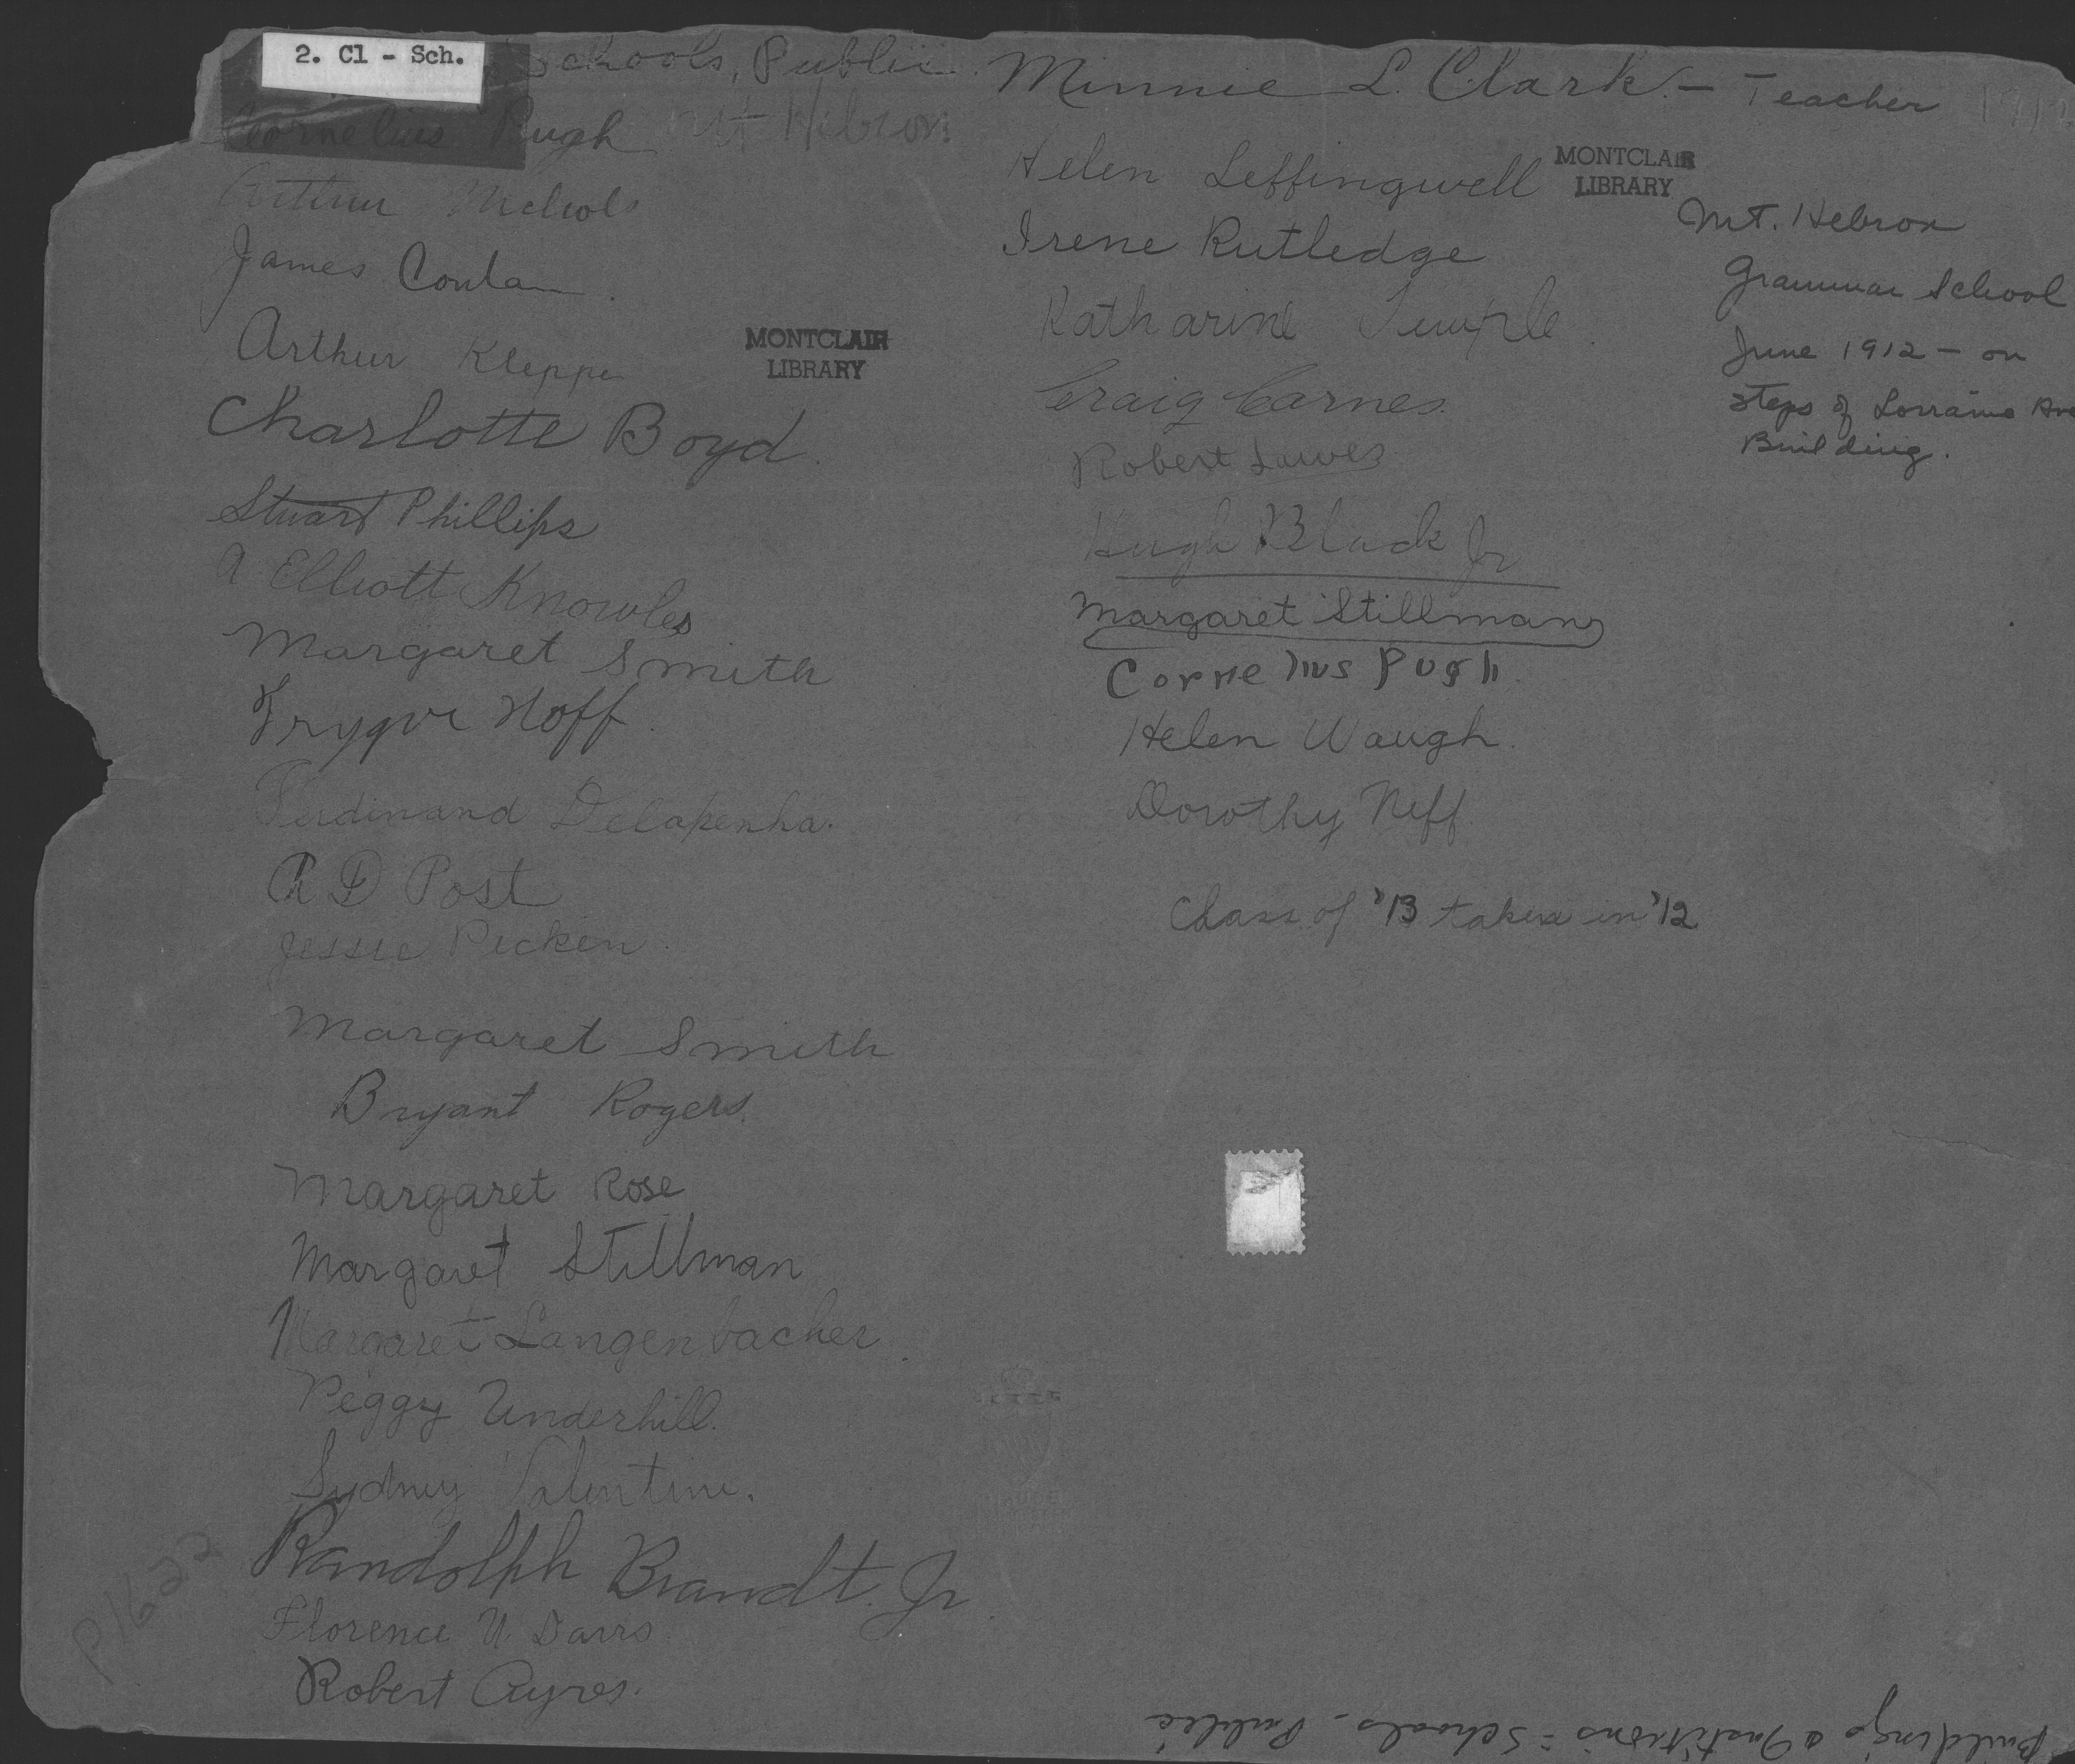 2. Cl - Sch.
Schools, Public
Cornelius Pugh Mt Hebron
Arthur Nichols
James Conlan
Arthur Kleppe
MONTCLAIR
LIBRARY
Charlotte Boyd
Stuart Phillips
A Elliott Knowles
Margaret Smith
Trygve Hoff
Ferdinand Delapenha.
R D Post
Jessie Picken
Margaret Smith
Bryant Rogers
Margaret Rose
Margaret Stillman
Margaret Langenbacher
Peggy Underhill.
Sydney Valentine.
Randolph Brandt. Jr
Florence
Robert Ayres.
P1622
Minnie L. Clark - Teacher
Helen Leffingwell
MONTCLAIR
LIBRARY
Irene Rutledge
Katharine Temple
Craig Carnes.
Robert
Hugh Black Jr
Margaret Stillman
Cornelius Pugh
Helen Waugh.
Dorothy Neff.
Class of '13 taken in '12
Mt. Hebron
Grammar School
June 1912 - on
steps of Lorraine Ave
Building.
Buildings & Institutions = Schools - Public